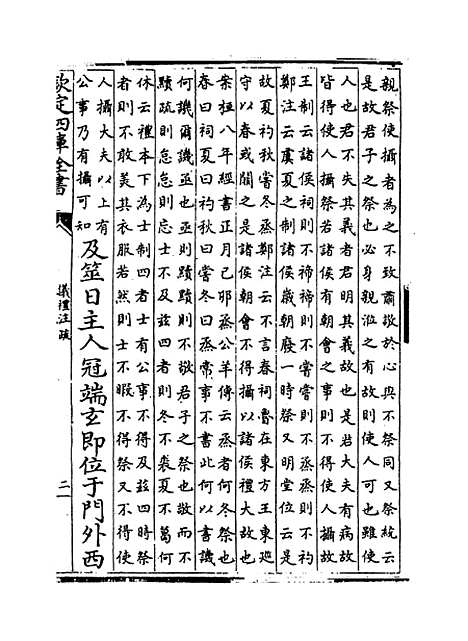 親祭使攝者為之不致肅敬於心與不祭同又祭統云
是故君子之祭也必身親涖之有故則使人可也雖使
人也君不失其義者君明其義故也是若大夫有病故
皆得使人攝祭若諸侯有朝會之事則不得使人攝故
王制云諸侯礿則不禘禘則不嘗嘗則不烝烝則不礿
鄭注云虞夏之制諸侯嵗朝廢一時祭又明堂位云是
故夏礿秋嘗冬烝鄭注云不言春祠魯在東方王東廵
守以春或闕之是諸侯朝會不得攝以諸侯禮大故也
案桓八年經書正月己卯烝公羊傳云烝者何冬祭也
春曰祠夏曰礿秋曰嘗冬曰烝常事不書此何以書譏
何譏爾譏亟也亟則黷黷則不敬君子之祭也敬而不
黷疏則怠怠則忘士不及兹四者則冬不裘夏不葛何
休云禮本下為士制四者士有公事不得及兹四時祭
者則不敢美其衣服若然則士不暇不得祭又不得使
人攝大夫以上有
公事乃有攝可知 及筮日主人冠端玄即位于門外西
欽定四庫全書
儀禮注疏
二